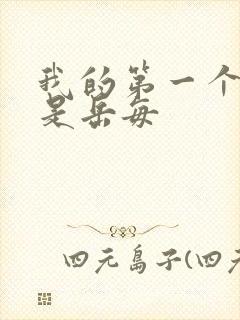 我的第一个
是岳每
四元岛子(四元